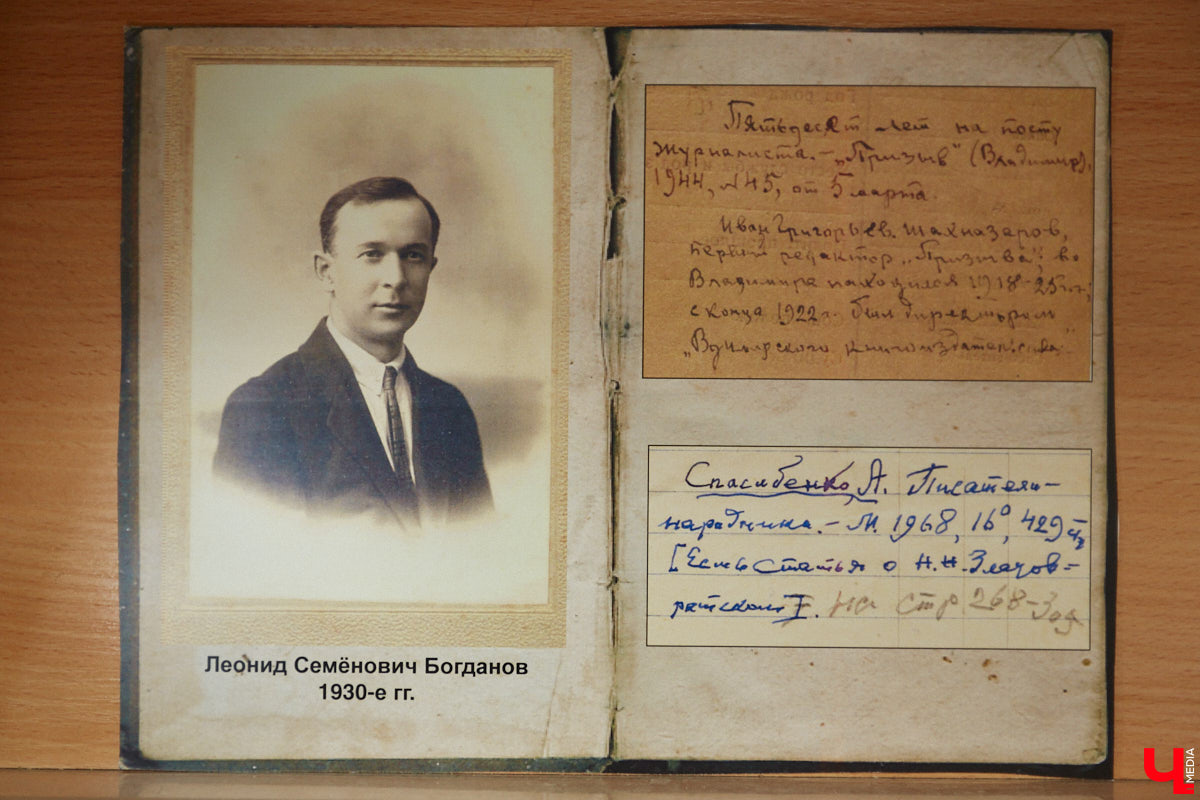 Леонид Семёнович Богданов
1930-е гг.
Пятьдесят лет на посту
журналиста. – „Призыв" (Владимир),
1944, №45, от 5 марта.
Иван Григорьев. Шахназаров,
первый редактор „Призыва", во
Владимире находился 1918-25 гг;
с конца 1922 г. был директором
Спасибенко, А. Писатели-
народники. – М. 1968, 16°, 429
[Есть статья о Н.Н. Златов-
ратском]. на стр 268-
Ч MEDIA